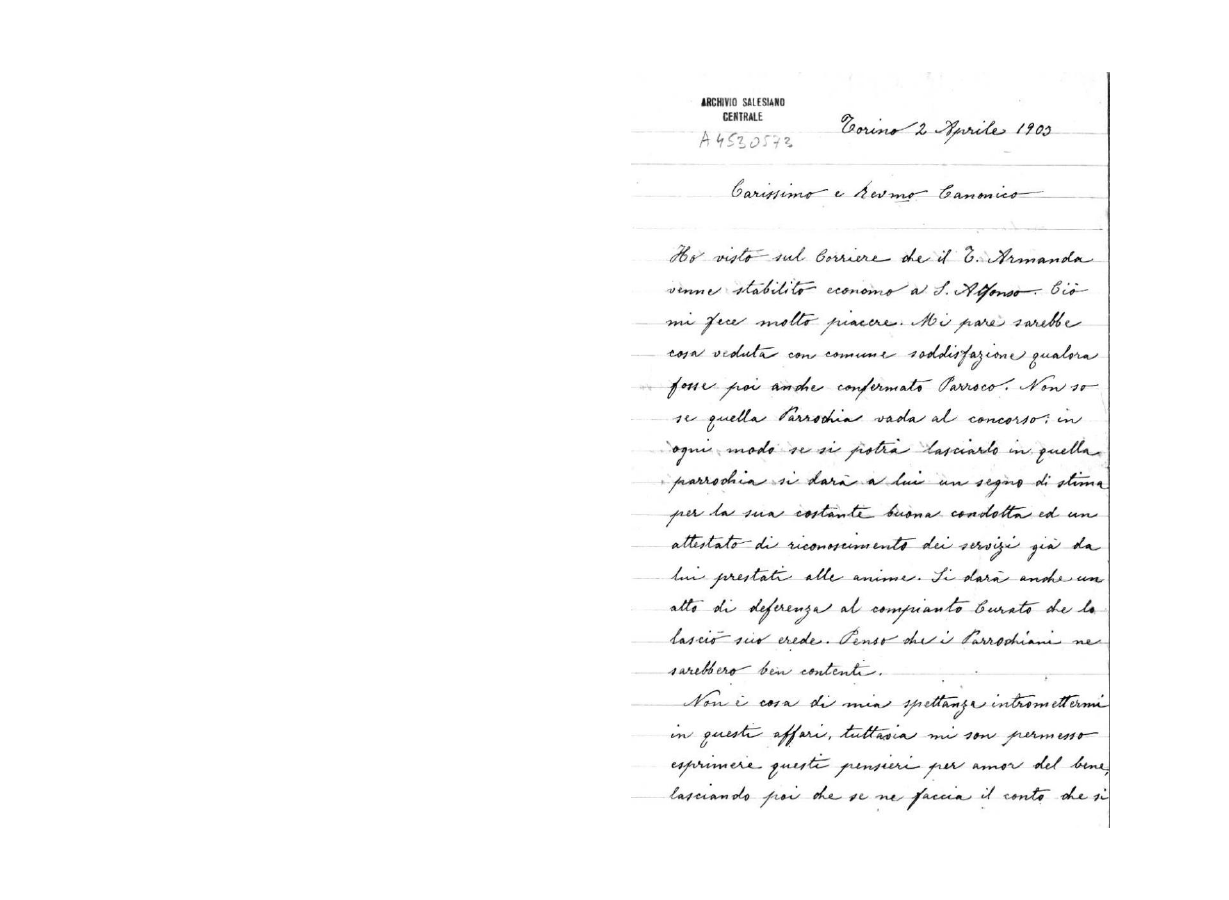 ARCHIVIO SALESIANO
CENTRALE
A4530573
Torino 2 Aprile 1903
Carissimo e Revmo Canonico
Ho visto sul Corriere che il T. Armanda
venne stabilito economo a S. Alfonso. Ciò
mi fece molto piacere. Mi pare sarebbe
cosa veduta con comune soddisfazione qualora
fosse poi anche confermato Parroco. Non so
se quella Parrochia vada al concorso: in
ogni modo se si potrà lasciarlo in quella
parrochia si darà a lui un segno di stima
per la sua costante buona condotta ed un
attestato di riconoscimento dei servizi già da
lui prestati alle anime. Si darà anche un
atto di deferenza al compianto Curato che lo
lasciò suo erede. Penso che i Parrochiani ne
sarebbero ben contenti.
Non è cosa di mia spettanza intromettermi
in questi affari, tuttavia mi son permesso
esprimere questi pensieri per amor del bene,
lasciando poi che se ne faccia il conto che si